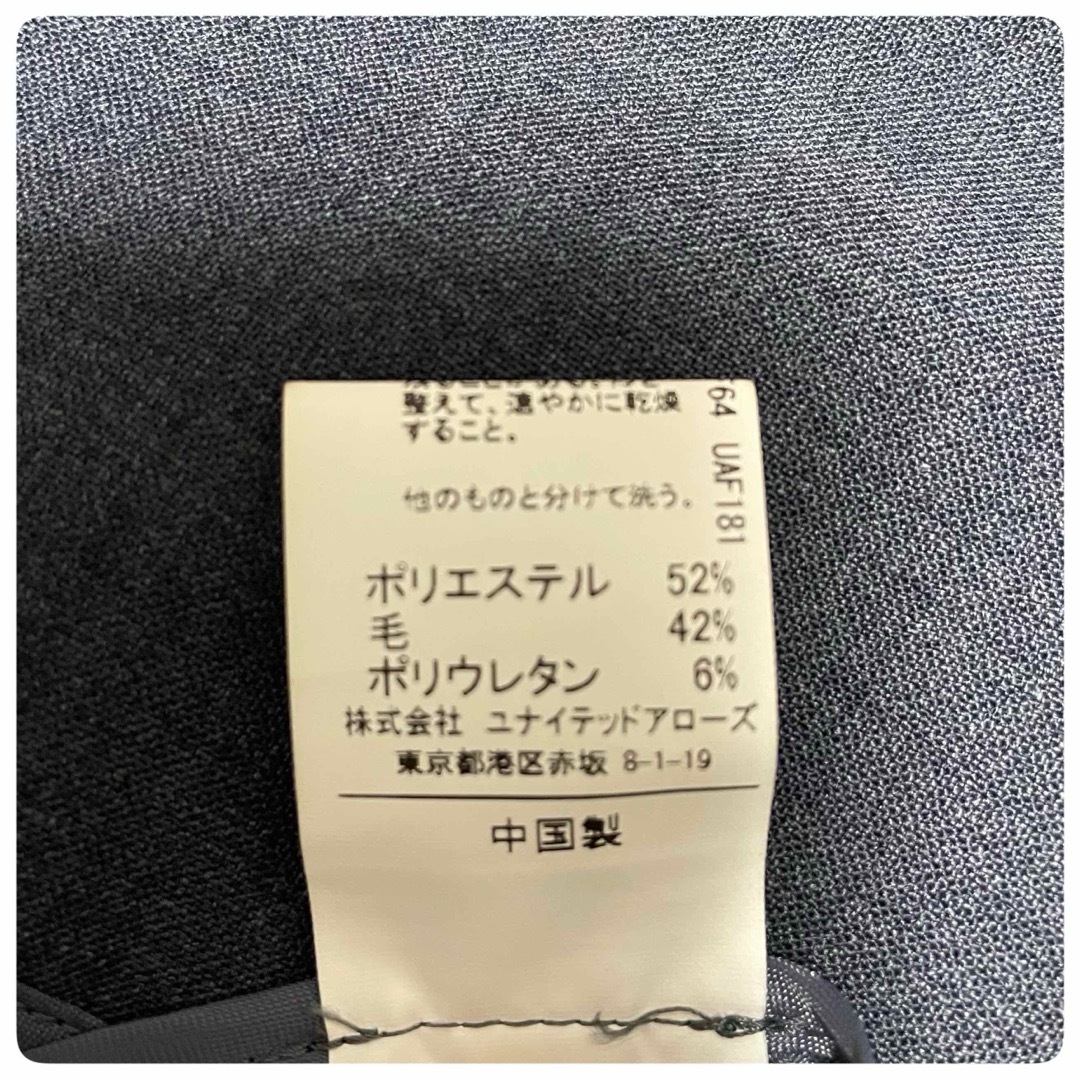 整えて、速やかに乾燥
すること。
他のものと分けて洗う。
64 UAF181
ポリエステル 52%
毛 42%
ポリウレタン 6%
株式会社 ユナイテッドアローズ
東京都港区赤坂 8-1-19
中国製